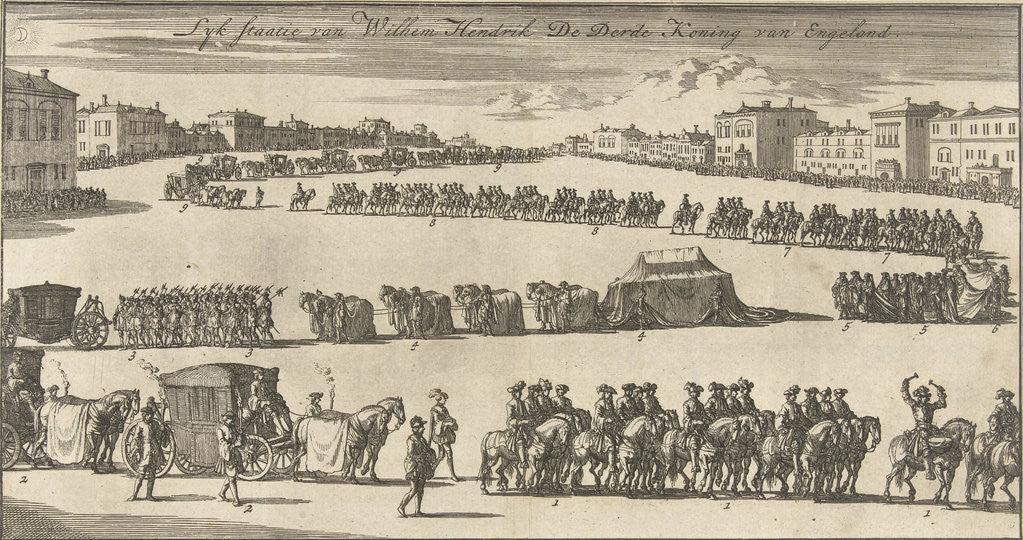 Lyk staatie van Wilhem Hendrik De Derde Koning van Engeland.
D
9 9 9
9
8 8 7 7
5 5 6
3 3 4 4
2 2 1 1 1